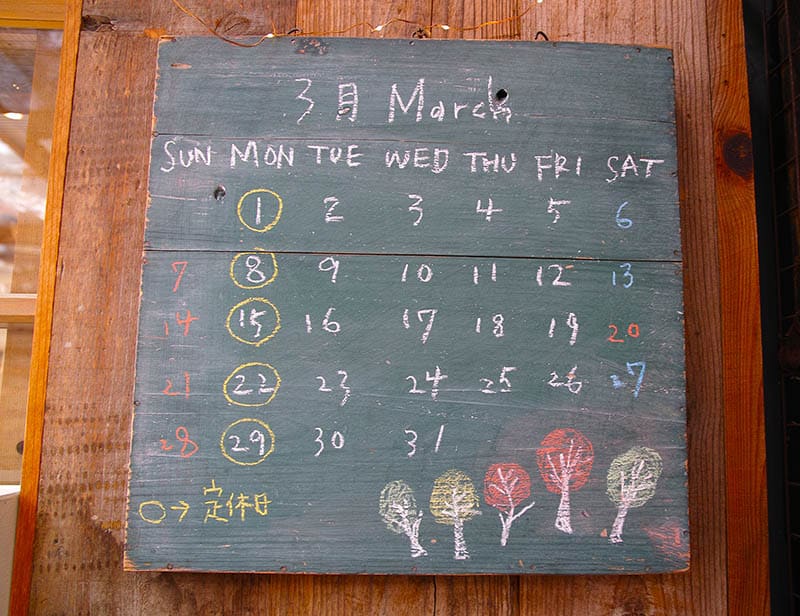 3月 March
SUN MON TUE WED THU FRI SAT
1 2 3 4 5 6
7 8 9 10 11 12 13
14 15 16 17 18 19 20
21 22 23 24 25 26 27
28 29 30 31
○→定休日